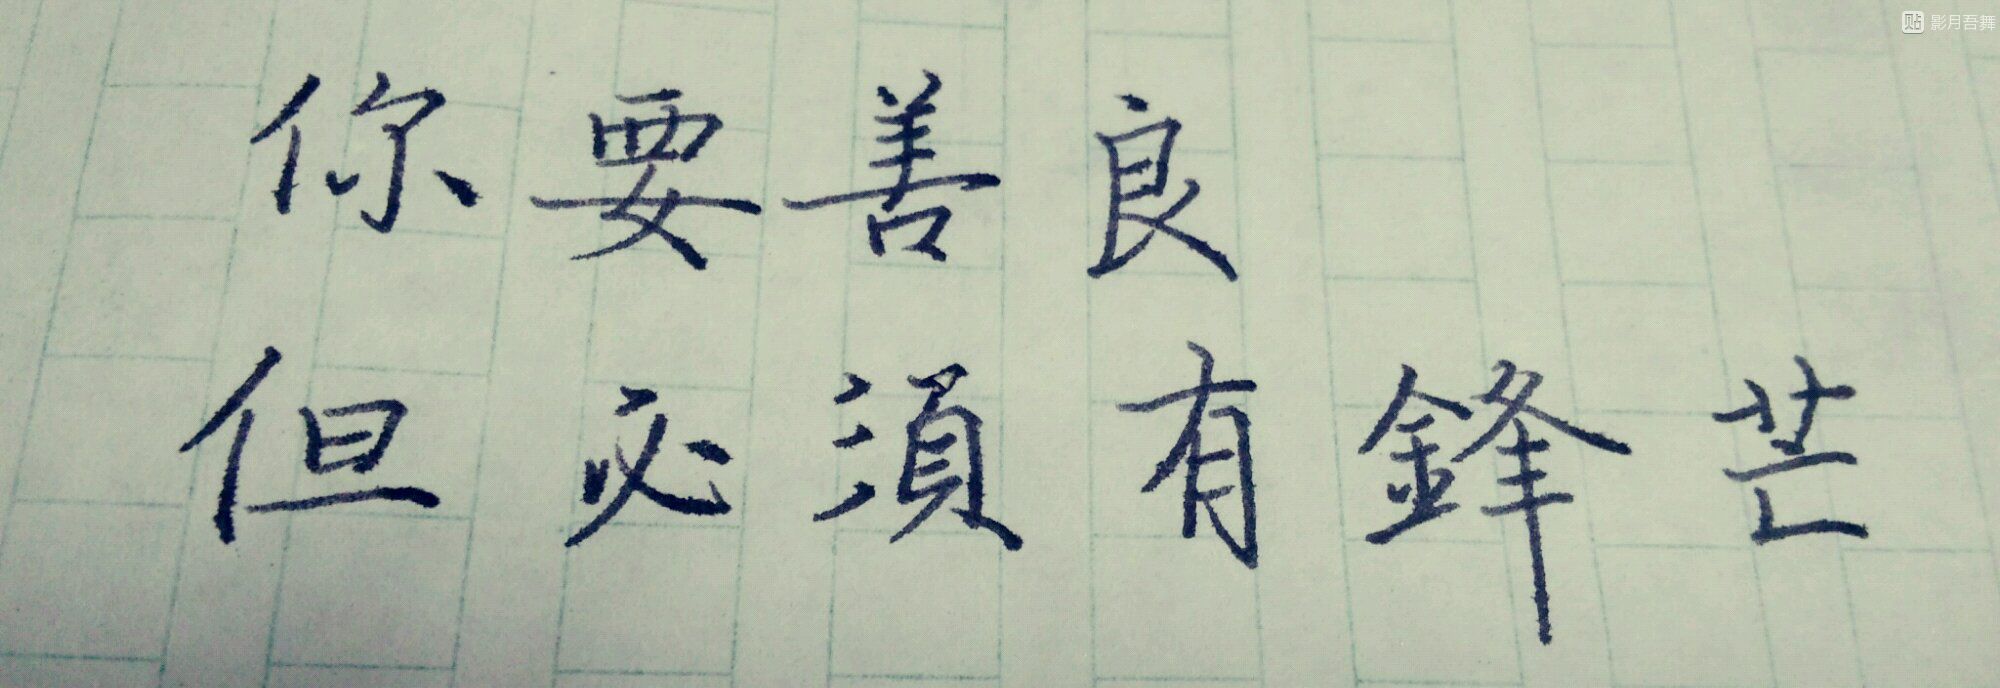 贴 影月吾舞
你要善良
但必須有鋒芒